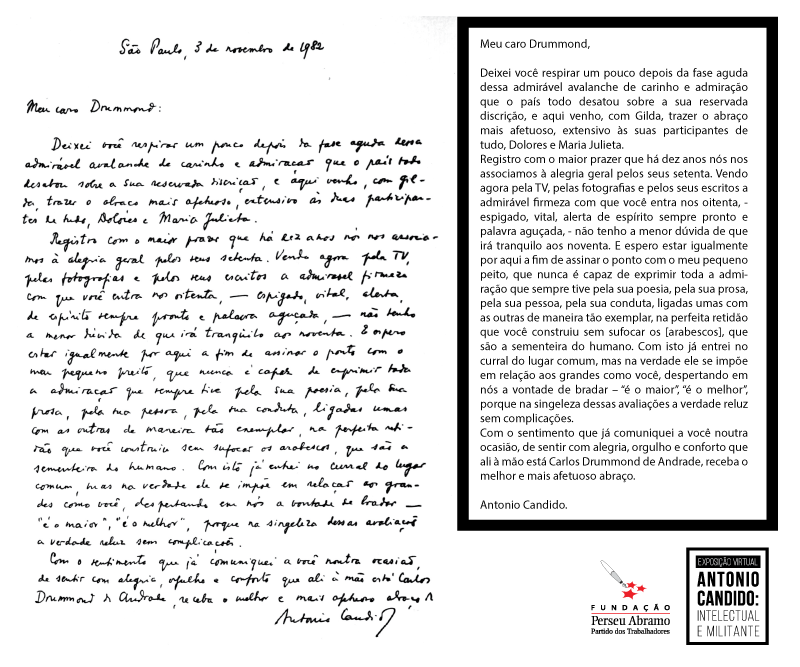 São Paulo, 3 de novembro de 1982
Meu caro Drummond:
Deixei você respirar um pouco depois da fase aguda dessa
admirável avalanche de carinho e admiração que o país todo
desatou sobre a sua reservada discrição, e aqui venho, com Gil-
da, trazer o abraço mais afetuoso, extensivo às duas participan-
tes de tudo, Dolores e Maria Julieta.
Registro com o maior prazer que há dez anos nós nos associa-
mos à alegria geral pelos seus setenta. Vendo agora pela TV,
pelas fotografias e pelos seus escritos a admirável firmeza
com que você entra nos oitenta, — espigado, vital, alerta,
de espírito sempre pronto e palavra aguçada, — não tenho
a menor dúvida de que irá tranqüilo aos noventa. E espero
estar igualmente por aqui a fim de assinar o ponto com o
meu pequeno preito, que nunca é capaz de exprimir toda
a admiração que sempre tive pela sua poesia, pela sua
prosa, pela sua pessoa, pela sua conduta, ligadas umas
com as outras de maneira tão exemplar, na perfeita reti-
dão que você construiu sem sufocar os arabescos, que são a
sementeira do humano. Com isto já entrei no curral do lugar
comum, mas na verdade ele se impõe em relação aos gran-
des como você, despertando em nós a vontade de bradar —
"é o maior", "é o melhor", porque na singeleza dessas avaliações
a verdade reluz sem complicações.
Com o sentimento que já comuniquei a você noutra ocasião,
de sentir com alegria, orgulho e conforto que ali à mão está Carlos
Drummond de Andrade, receba o melhor e mais afetuoso abraço
Antonio Candido
Meu caro Drummond,
Deixei você respirar um pouco depois da fase aguda
dessa admirável avalanche de carinho e admiração
que o país todo desatou sobre a sua reservada
discrição, e aqui venho, com Gilda, trazer o abraço
mais afetuoso, extensivo às suas participantes de
tudo, Dolores e Maria Julieta.
Registro com o maior prazer que há dez anos nós nos
associamos à alegria geral pelos seus setenta. Vendo
agora pela TV, pelas fotografias e pelos seus escritos a
admirável firmeza com que você entra nos oitenta, -
espigado, vital, alerta de espírito sempre pronto e
palavra aguçada, - não tenho a menor dúvida de que
irá tranquilo aos noventa. E espero estar igualmente
por aqui a fim de assinar o ponto com o meu pequeno
peito, que nunca é capaz de exprimir toda a admi-
ração que sempre tive pela sua poesia, pela sua prosa,
pela sua pessoa, pela sua conduta, ligadas umas com
as outras de maneira tão exemplar, na perfeita retidão
que você construiu sem sufocar os [arabescos], que
são a sementeira do humano. Com isto já entrei no
curral do lugar comum, mas na verdade ele se impõe
em relação aos grandes como você, despertando em
nós a vontade de bradar – “é o maior”, “é o melhor”,
porque na singeleza dessas avaliações a verdade reluz
sem complicações.
Com o sentimento que já comuniquei a você noutra
ocasião, de sentir com alegria, orgulho e conforto que
ali à mão está Carlos Drummond de Andrade, receba o
melhor e mais afetuoso abraço.
Antonio Candido.
FUNDAÇÃO
Perseu Abramo
Partido dos Trabalhadores
EXPOSIÇÃO VIRTUAL
ANTONIO
CANDIDO:
INTELECTUAL
E MILITANTE